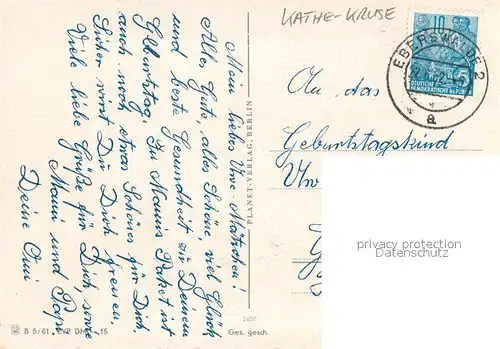 Mein liebes Uwe-Mätzchen!
Alles Gute, alles Schöne, viel Glück
und beste Gesundheit zu Deinem
Geburtstag. In Mamis Paket ist
auch noch etwas Schönes für Dich.
Sicher wirst Du Dich freuen.
Viele liebe Grüße für Dich, sowie
Mami und Papi
Deine Omi
B 5/61 DMR 15
PLANET-VERLAG, BERLIN
2407
Ges. gesch
KATHE-KRUSE
10
5
DEUTSCHE
DEMOKRATISCHE REPUBLIK
EBERSWALDE 2
a
An das
Geburtstagskind
Uwe
privacy protection
Datenschutz